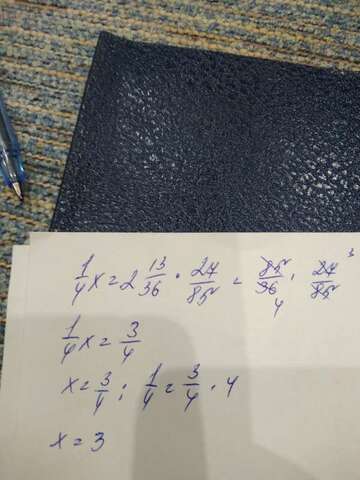 1/4 x = 2 13/36 · 27/85 = 85/36 4 · 27/85 3
1/4 x = 3/4
x = 3/4 : 1/4 = 3/4 · 4
x = 3